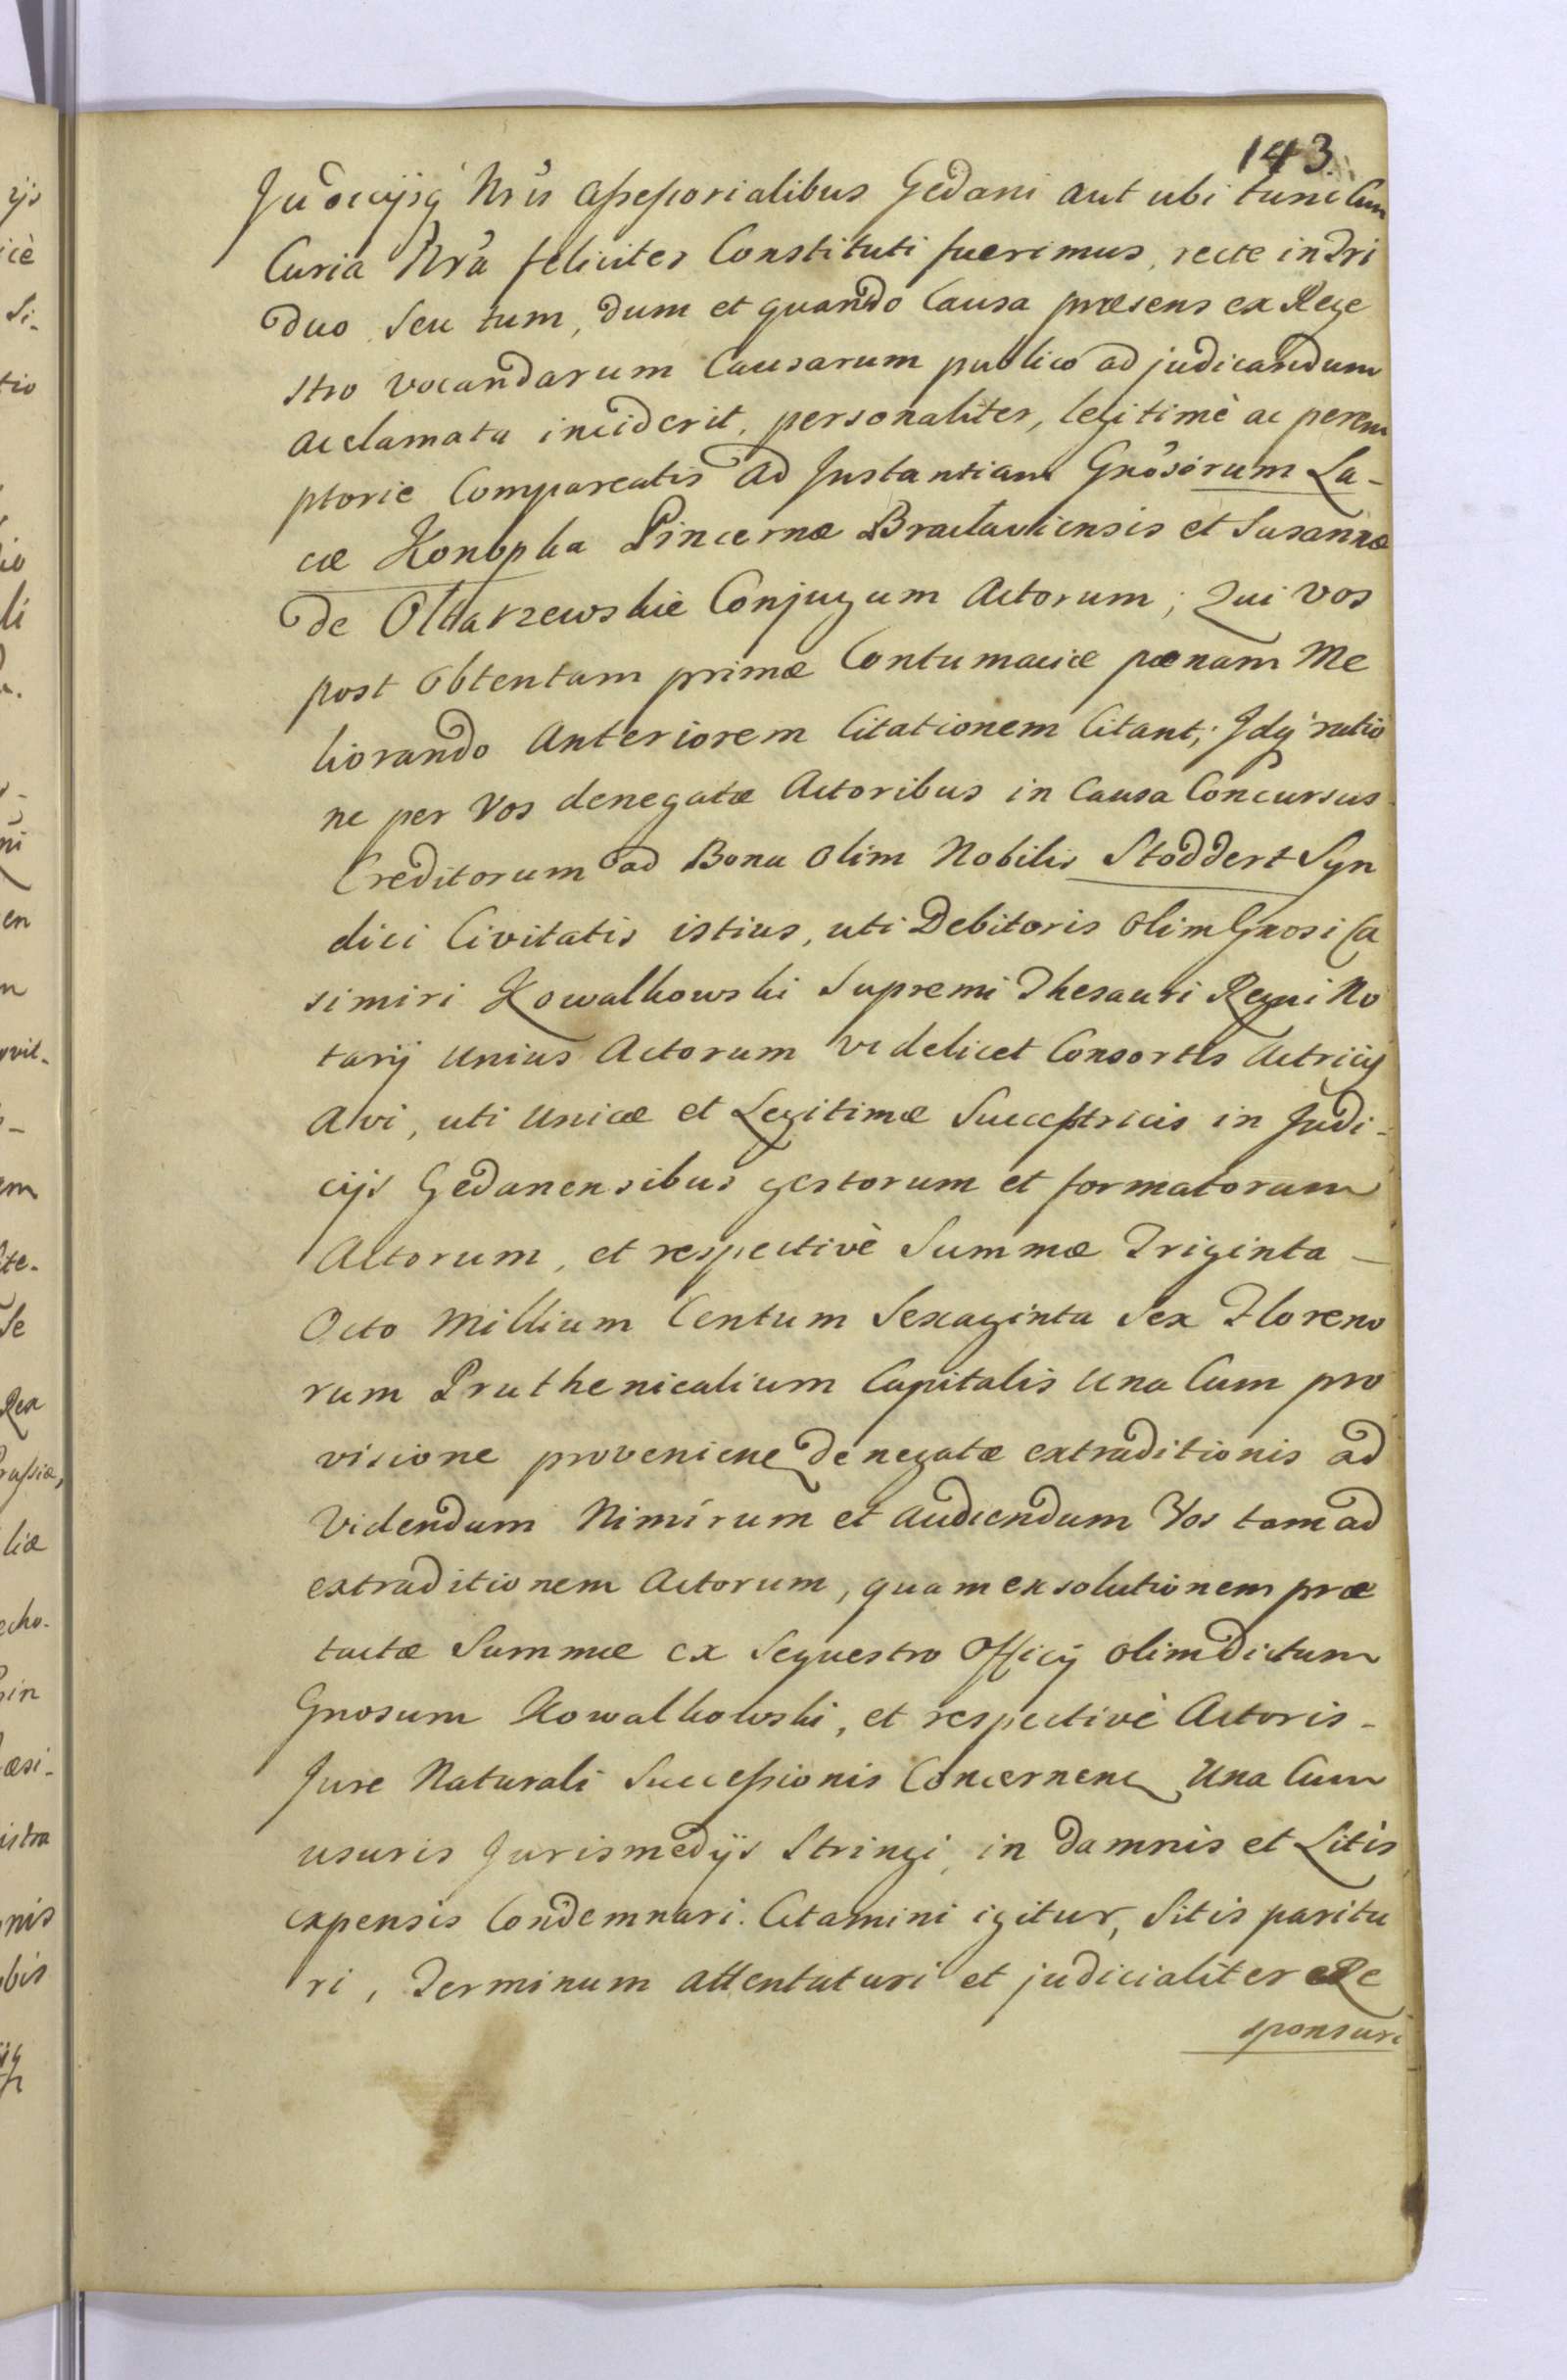 143.
Judicijsq Nris Assessorialibus Gedani aut ubi tunc Cum
Curia Nra feliciter Constituti fuerimus, recte in Tri
duo seu tum, dum et quando Causa præsens ex Rege
stro vocandarum Causarum publico ad judicandum
acclamata inciderit, personaliter, legitimè ac perem
ptorie Compareatis ad Instantiam Gnosorum La-
cæ Konopka Pincernæ Braclaviensis et Susannæ
de Ołtarzewskie Conjugum Actorum; Qui vos
post obtentam primæ Contumaciæ pænam Me
liorando Anteriorem Citationem Citant; Idq ratio
ne per Vos denegatæ Actoribus in Causa Concursus
Creditorum ad Bona olim Nobilis Stoddert Syn
dici Civitatis istius, uti Debitoris olim Gnosi Ca
simiri Kowalkowski Supremi Thesauri Regni No
tarij unius Actorum videlicet Consortis Actricis
Avi, uti Unicæ et Legitimæ Successtricis in Judi-
cijs Gedanensibus gestorum et formatorum
Actorum, et respectivè Summæ Triginta -
Octo Millium Centum Sexaginta Sex Floreno
rum Pruthenicalium Capitalis una Cum pro
visione proveniene denegatæ extraditionis ad
Videndum Nimirum et audiendum Vos tam ad
extraditionem Actorum, quam exsolutionem præ
tactæ Summæ ex Sequestro Officij olim dictum
Gnosum Kowalkowski, et respectivè Actoris -
Jure Naturali Successionis Concernene Una Cum
usuris Jurismedijs Stringi, in damnis et Litis
expensis Condemnari. Citamini igitur, Sitis paritu
ri, Terminum attentaturi et judicialiter Re
sponsuri